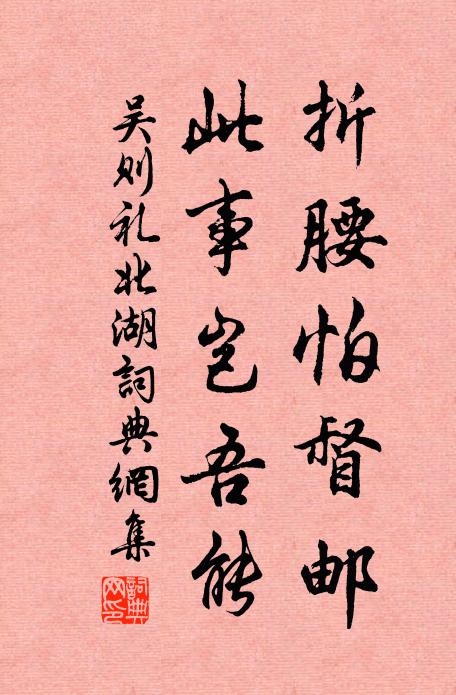 折腰怕督邮
此事岂吾能
吴则礼北湖詞典網集
詞典網印